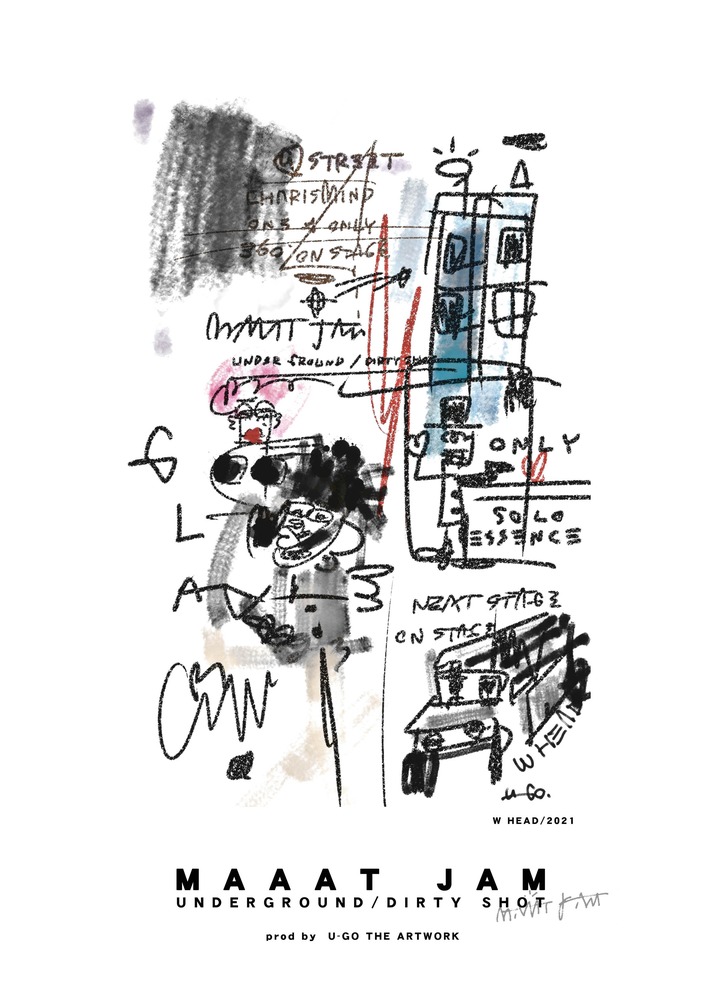 @ STR33T
CHARISMIND
ON3 & ONLY
360 / ON STAGE
MAAAT JAM
UNDER GROUND / DIRTY SHOT
ONLY
SOLO
ESSENCE
NEXT STAGE
ON STAGE
W HEAD
U-GO.
W HEAD/2021
MAAAT JAM
UNDERGROUND/DIRTY SHOT
prod by U-GO THE ARTWORK